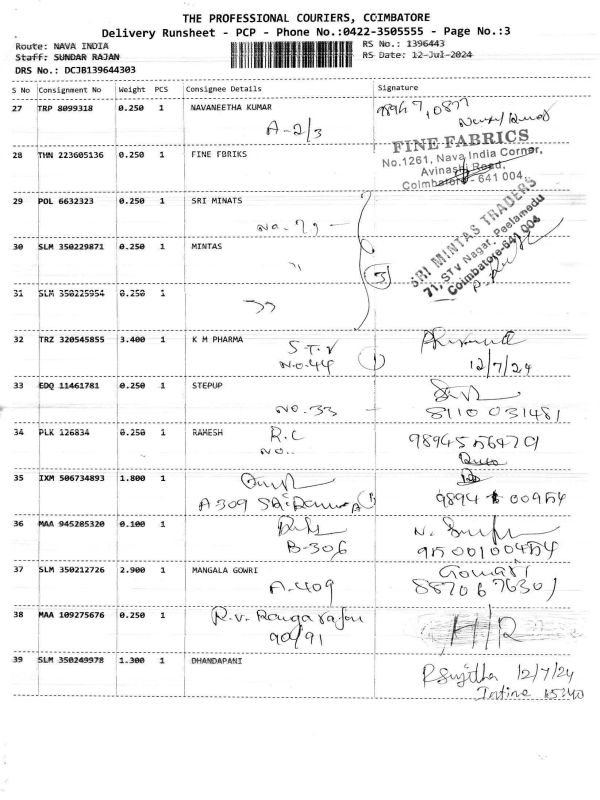 THE PROFESSIONAL COURIERS, COIMBATORE
Delivery Runsheet - PCP - Phone No.:0422-3505555 - Page No.:3
Route: NAVA INDIA
RS No.: 1396443
Staff: SUNDAR RAJAN
RS Date: 12-Jul-2024
DRS No.: DCJB139644303
S No Consignment No Weight PCS Consignee Details Signature
27 TRP 8099318 0.250 1 NAVANEETHA KUMAR
A-2/3
28 THN 223605136 0.250 1 FINE FBRIKS
FINE FABRICS
No.1261, Nava India Corner,
Avinashi Road,
Coimbatore - 641 004.
29 POL 6632323 0.250 1 SRI MINATS
No. 71 -
SRI MINTAS TRADERS
71, STV Nagar, Peelamedu
Coimbatore-641 004
30 SLM 350229871 0.250 1 MINTAS
"
3
31 SLM 350225954 0.250 1
"
32 TRZ 320545855 3.400 1 K M PHARMA
S.T.V
No.44
1
12/7/24
33 EDQ 11461781 0.250 1 STEPUP
No. 33 -
8110 031481
34 PLK 126834 0.250 1 RAMESH
R.C
No..
35 IXM 506734893 1.800 1
A 309
9894 00954
36 MAA 945205320 0.100 1
B-306
37 SLM 350212726 2.900 1 MANGALA GOWRI
A-409
Gowri
8870676301
38 MAA 109275676 0.250 1
R.V. Rangarajan
90/91
H/R
39 SLM 350249978 1.300 1 DHANDAPANI
P Sujitha 12/7/24